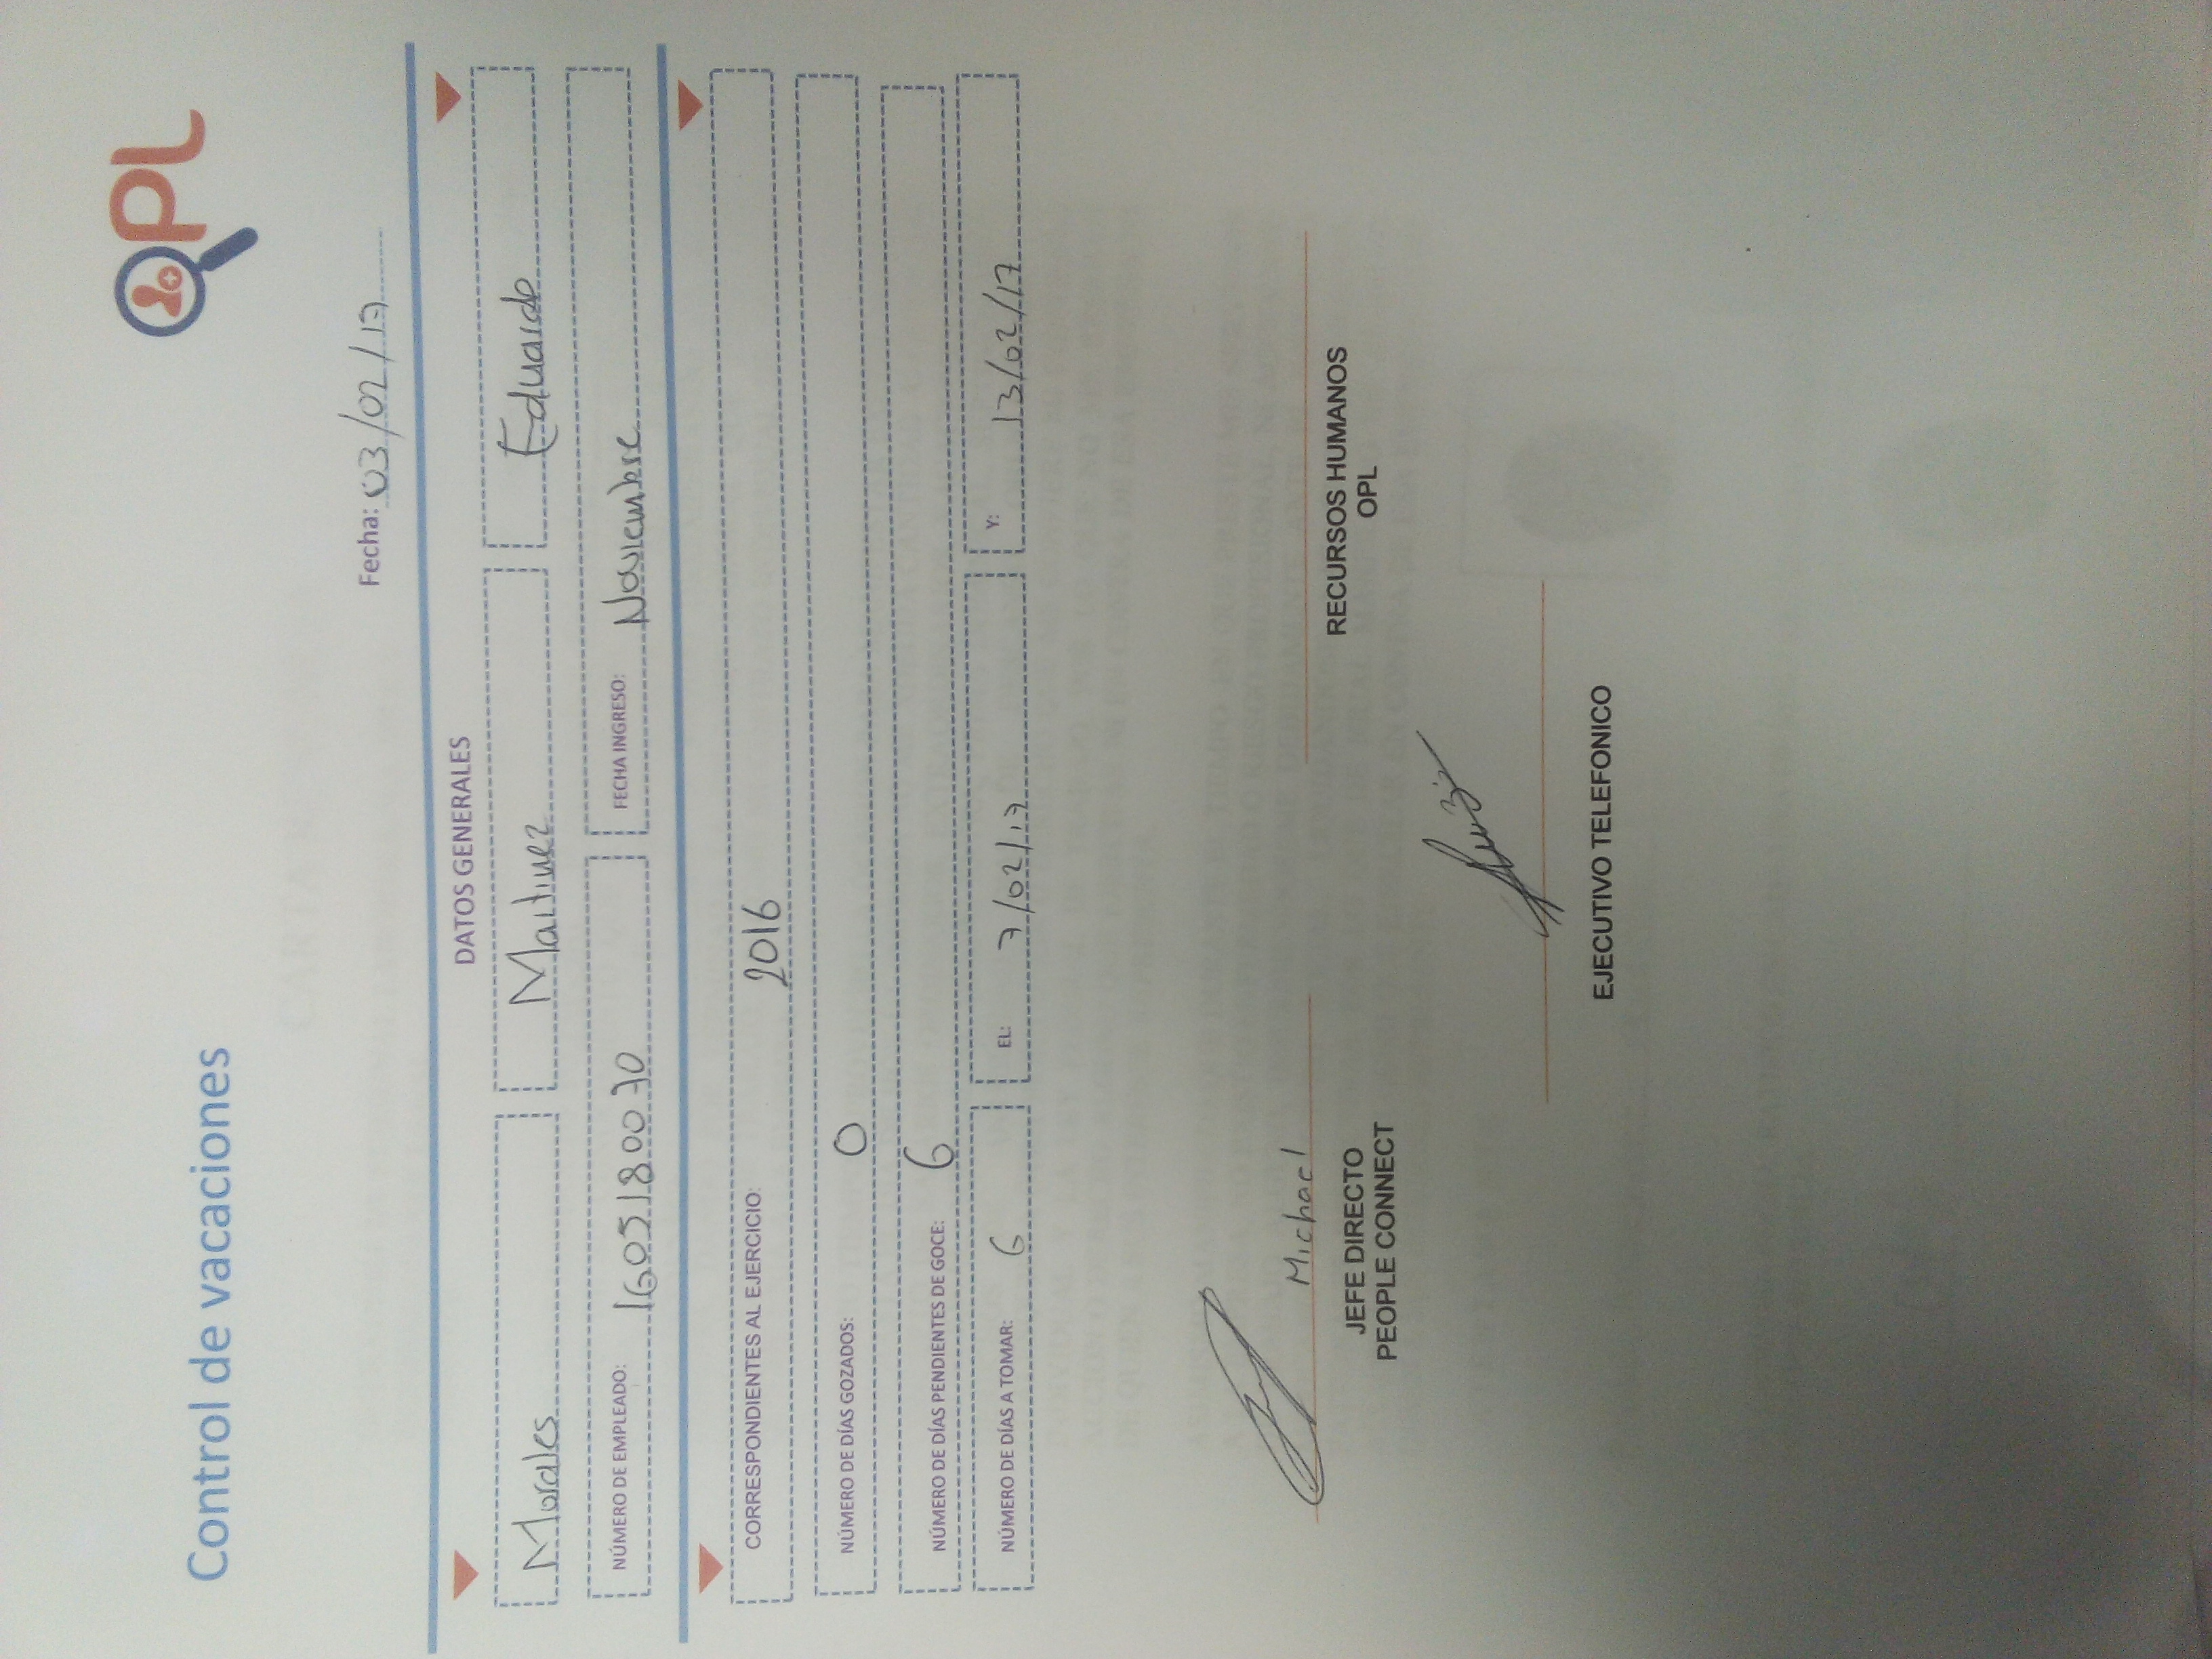 Control de vacaciones
OPL
Fecha: 03/02/17
DATOS GENERALES
Morales Martinez Eduardo
NÚMERO DE EMPLEADO: 1605180070 FECHA INGRESO: Noviembre
CORRESPONDIENTES AL EJERCICIO: 2016
NÚMERO DE DÍAS GOZADOS: 0
NÚMERO DE DÍAS PENDIENTES DE GOCE: 6
NÚMERO DE DÍAS A TOMAR: 6 EL: 7/02/17 Y: 13/02/17
Michael
JEFE DIRECTO
PEOPLE CONNECT
RECURSOS HUMANOS
OPL
EJECUTIVO TELEFONICO